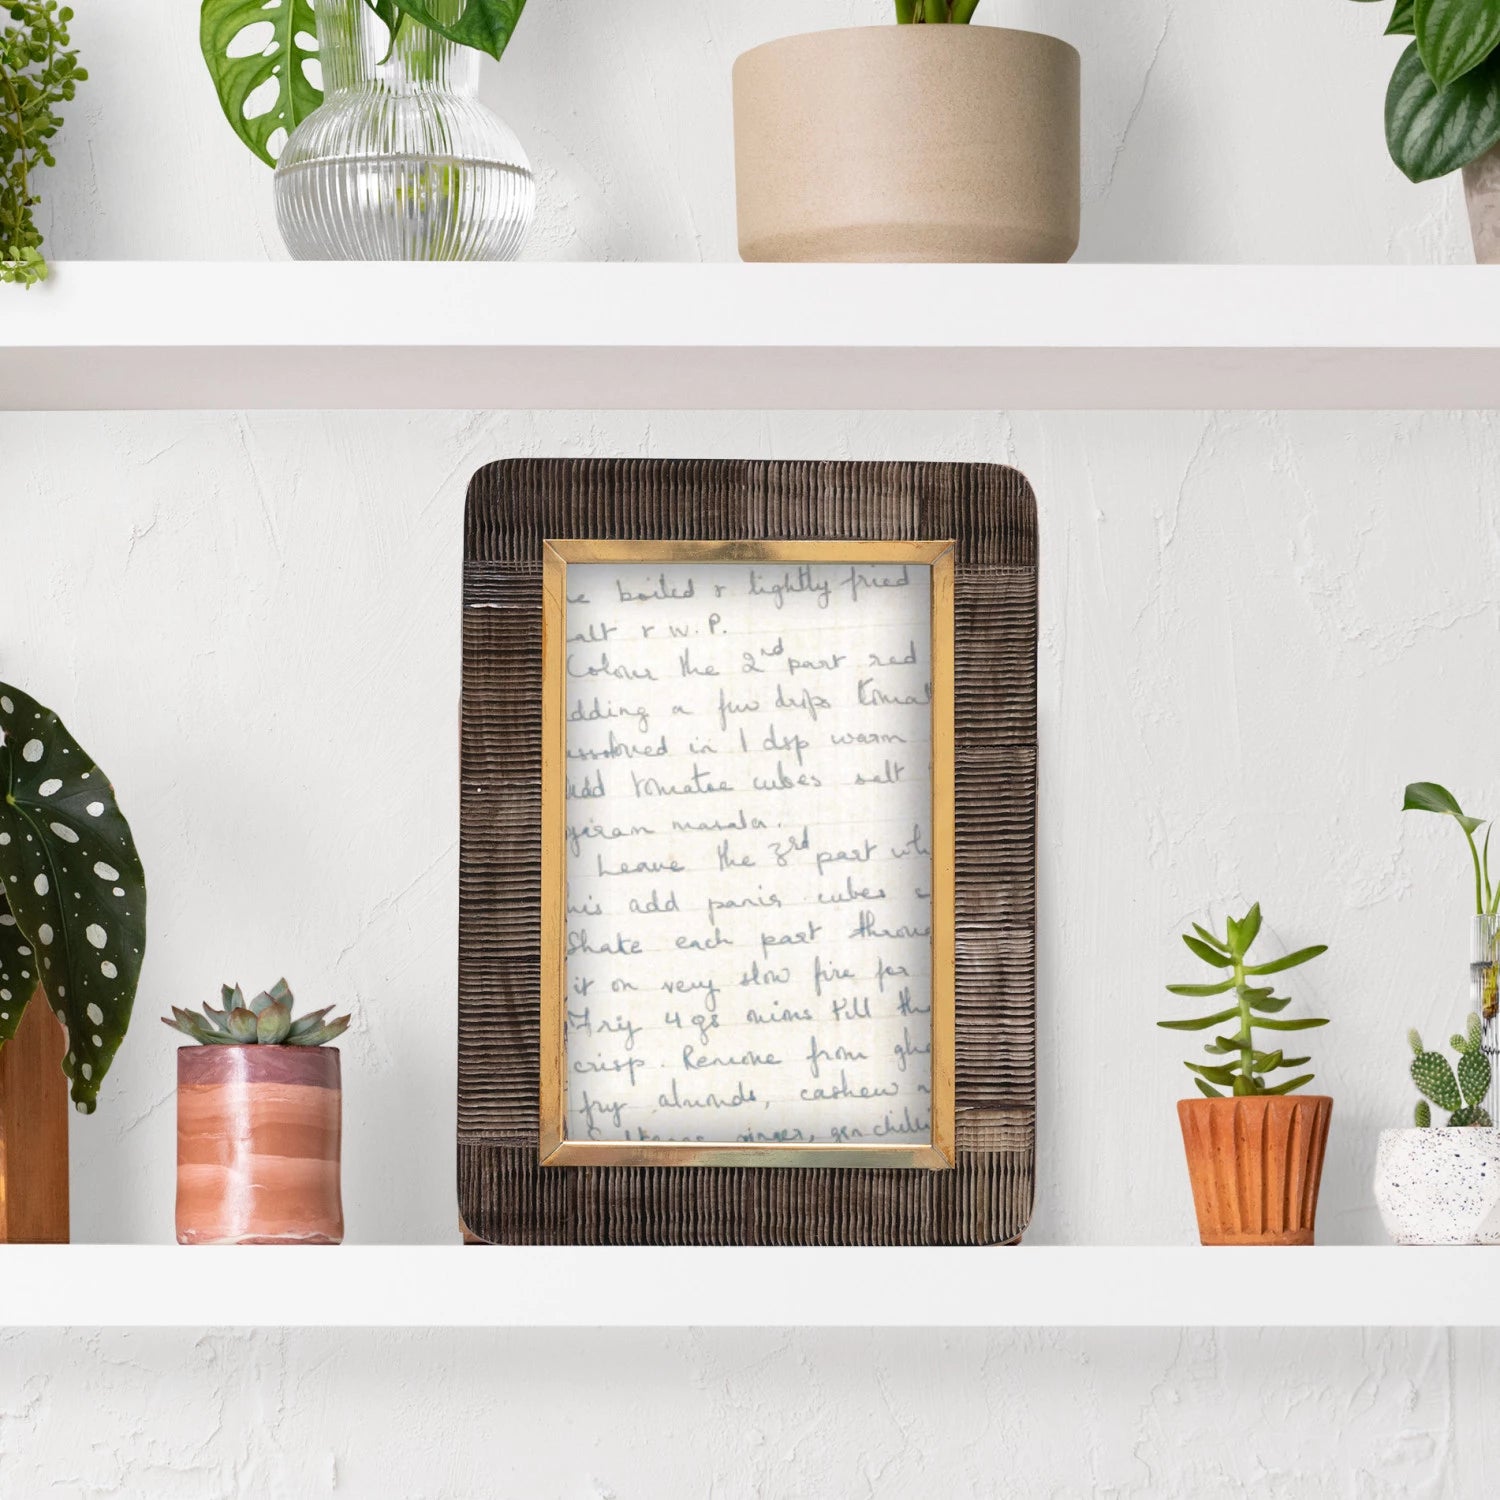 e boiled & lightly fried
alt & W.P.
Colour the 2nd part red
dding a few drops tomat
ssolved in 1 dsp warm
Add tomatoe cubes salt
giram masala.
Leave the 3rd part wh
his add panir cubes
Shake each part throu
it on very slow fire for
Fry 4 gs onions till th
crisp. Remove from ghe
fry almonds, cashew n
Sultanas, ginger, gr. chilli